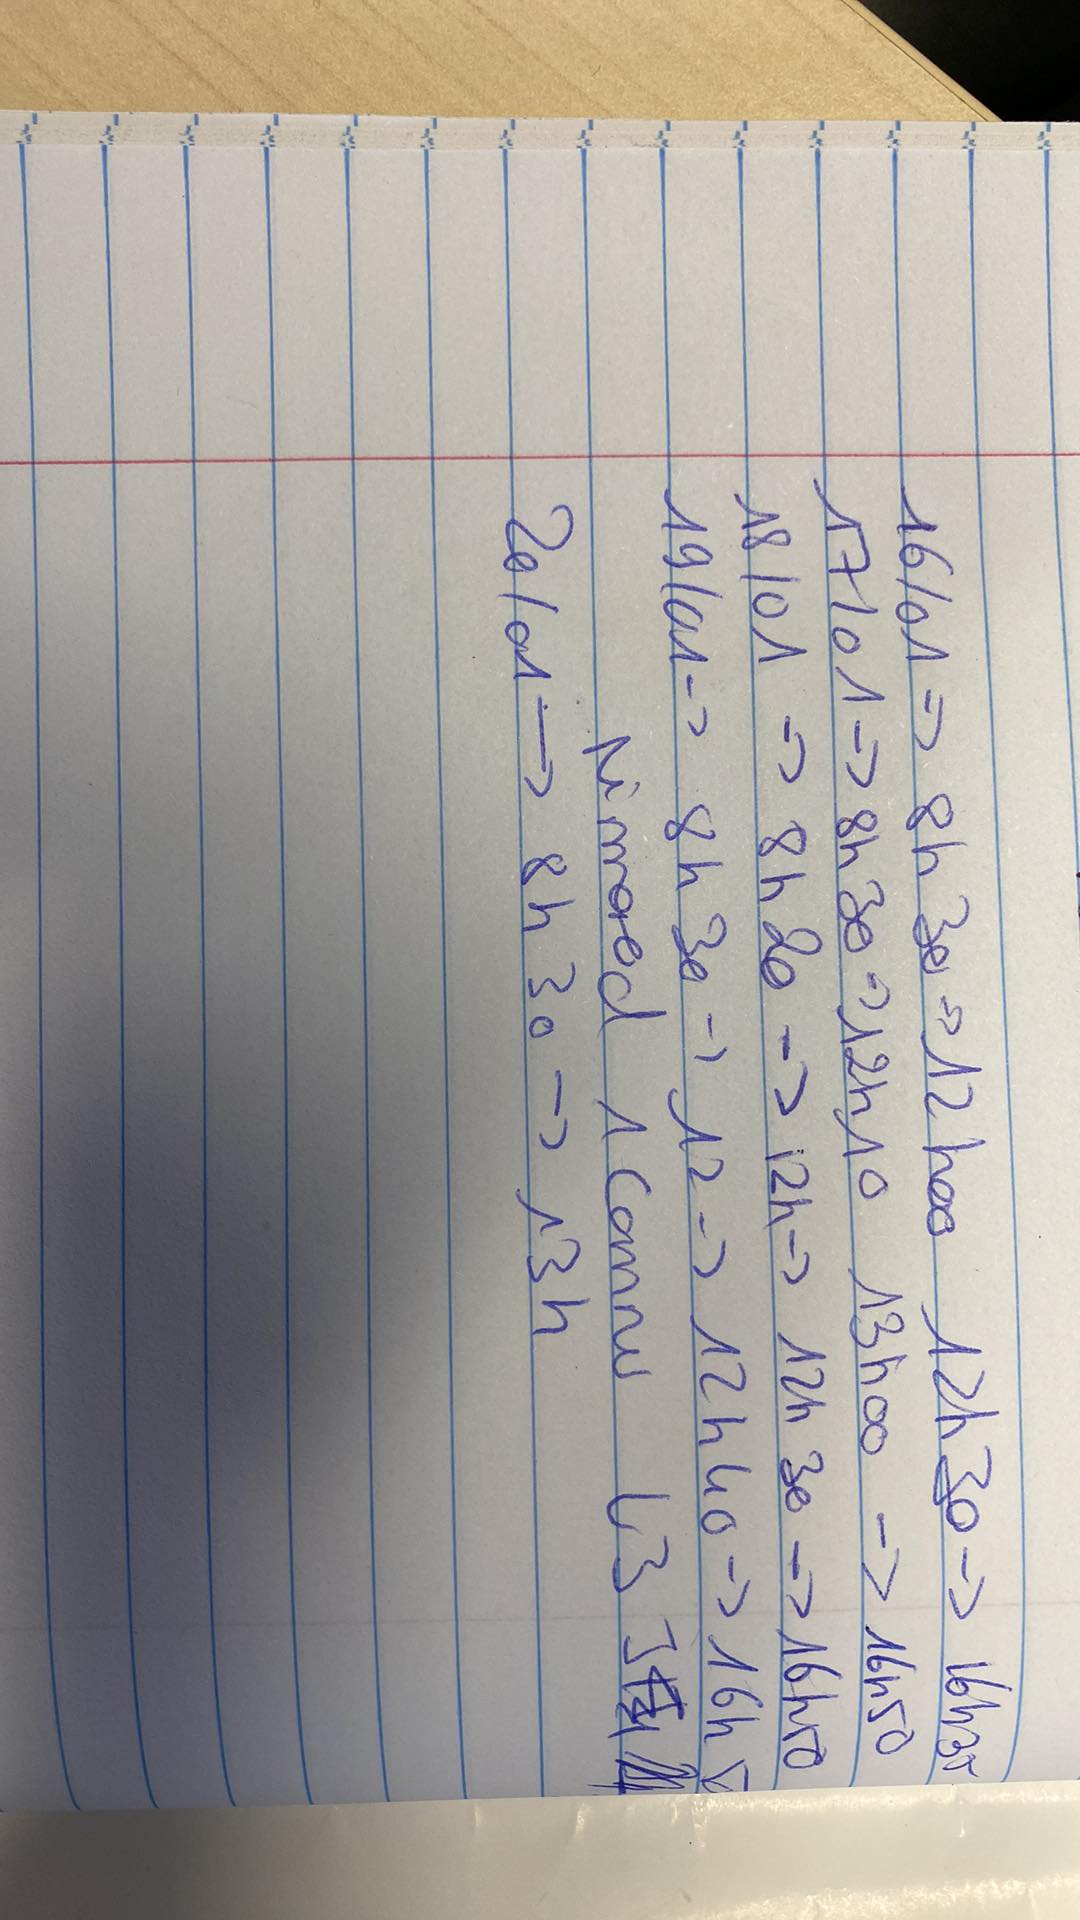 16/01 -> 8h30 -> 12h00 12h30 -> 16h30
17/01 -> 8h30 -> 12h10 13h00 -> 16h50
18/01 -> 8h20 -> 12h -> 12h30 -> 16h50
19/01 -> 8h30 -> 12 -> 12h40 -> 16h
1 L3
20/01 -> 8h30 -> 13h